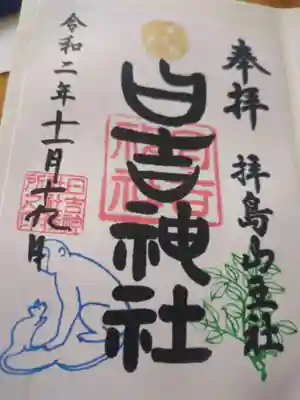 奉拝 拝島山王社
日吉神社
令和二年十一月十九日
日吉神社